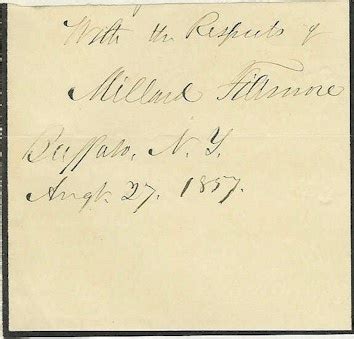 With the Respects of
Millard Fillmore
Buffalo, N. Y.
Augt. 27. 1857.